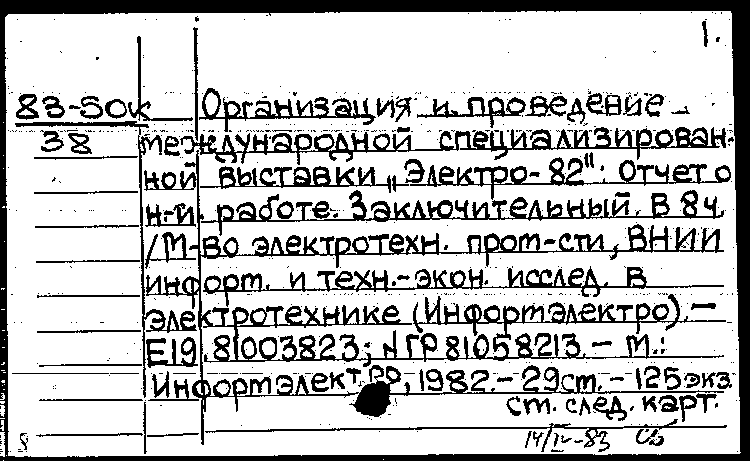 1.
83-50к Организация и проведение
38 международной специализирован-
ной выставки „Электро-82": Отчет о
н.-и. работе. Заключительный. В 8 ч.
/М-во электротехн. пром-сти, ВНИИ
информ. и техн.-экон. исслед. в
электротехнике (Информэлектро). —
Е19.81003823; № ГР 81058213. — М.:
Информэлектро, 1982. — 29 см. — 125 экз.
см. след. карт.
8 14/IV-83 СБ